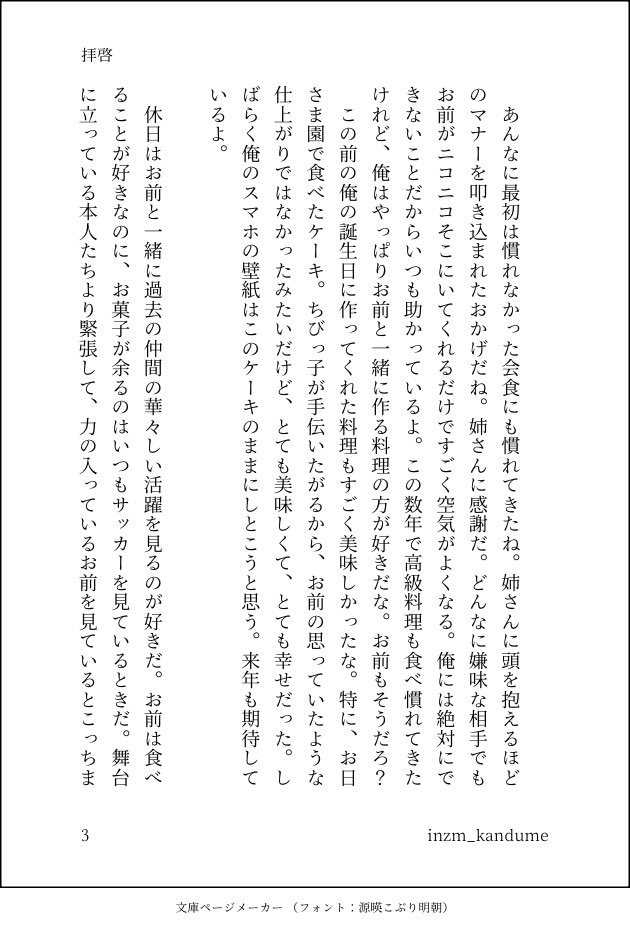 拝啓
あんなに最初は慣れなかった会食にも慣れてきたね。姉さんに頭を抱えるほど
のマナーを叩き込まれたおかげだね。姉さんに感謝だ。どんなに嫌味な相手でも
お前がニコニコそこにいてくれるだけですごく空気がよくなる。俺には絶対にで
きないことだからいつも助かっているよ。この数年で高級料理も食べ慣れてきた
けれど、俺はやっぱりお前と一緒に作る料理の方が好きだな。お前もそうだろ？
この前の俺の誕生日に作ってくれた料理もすごく美味しかったな。特に、お日
さま園で食べたケーキ。ちびっ子が手伝いたがるから、お前の思っていたような
仕上がりではなかったみたいだけど、とても美味しくて、とても幸せだった。し
ばらく俺のスマホの壁紙はこのケーキのままにしとこうと思う。来年も期待して
いるよ。
休日はお前と一緒に過去の仲間の華々しい活躍を見るのが好きだ。お前は食べ
ることが好きなのに、お菓子が余るのはいつもサッカーを見ているときだ。舞台
に立っている本人たちより緊張して、力の入っているお前を見ているとこっちま
3
inzm_kandume
文庫ページメーカー （フォント：源暎こぶり明朝）